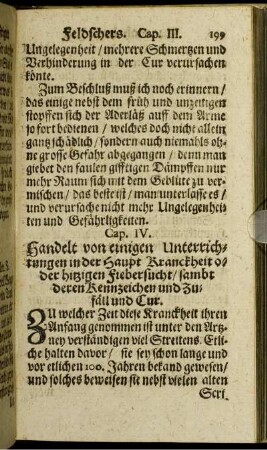 Feldschers. Cap. III. 199
Ungelegenheit / mehrere Schmertzen und
Verhinderung in der Cur verursachen
könte.
Zum Beschluß muß ich noch erinnern /
das einige nebst dem früh und unzeitigen
stopffen sich der Aderläß auff dem Arme
so fort bedienen / welches doch nicht allein
gantz schädlich / sondern auch niemahls oh-
ne grosse Gefahr abgegangen / denn man
giebet den faulen gifftigen Dämpffen nur
mehr Raum sich mit dem Geblüte zu ver-
mischen / das beste ist / man unterlasse es /
und verursache nicht mehr Ungelegenhei-
ten und Gefährligkeiten.
Cap. IV.
Handelt von einigen Unterrich-
tungen in der Haupt Kranckheit o-
der hitzigen Fiebersucht / sambt
deren Kennzeichen und Zu-
fäll und Cur.
ZU welcher Zeit diese Kranckheit ihren
Anfang genommen ist unter den Artz-
ney verständigen viel Streitens. Etli-
che halten davor / sie sey schon lange und
vor etlichen 100. Jahren bekand gewesen /
und solches beweisen sie nebst vielen alten
Scri-